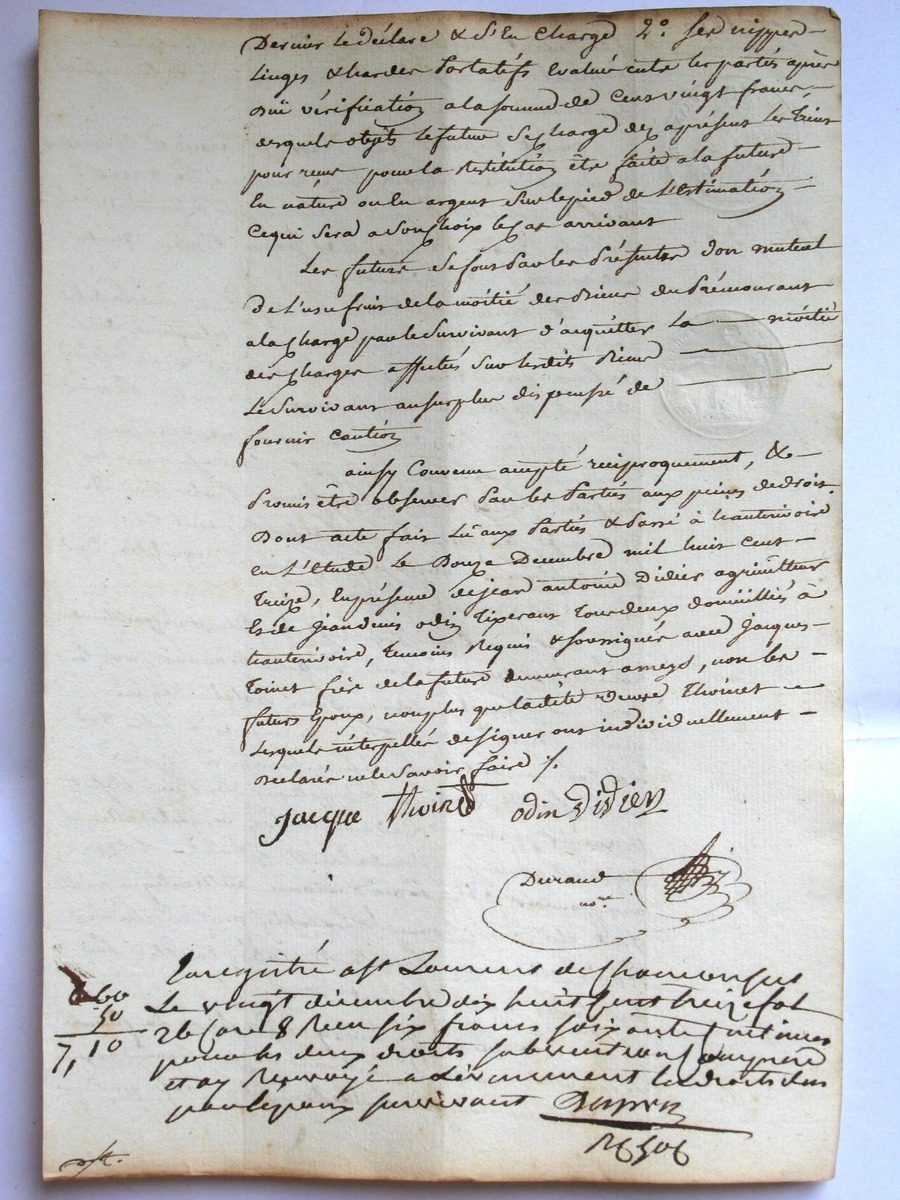 Dernier le déclare & s'En Charge 2°. Ses nippes
Linges & hardes Portatifs Evalué entre les parties après
düe vérification a la somme de Cent vingt francs
desquels objets le futur se charge dez aprésent les Siens
pour pour la Restitution être faite a la future
En nature ou En argent Sur le pied de L'Estimation
Ce qui Sera a Son choix le Cas arrivant
Les futurs Se font Par les Présentes don mutuel
De L'usufruit de la moitié des Biens du Prémourant
a la charge par le Survivant d'acquitter La moitié
des Charges affectés Sur lesdits Biens
Le Survivant au surplus dispensé de
fournir Caution
ainsy Convenu accepté réciproquement, &
Promis être observer Par les Parties aux peines de droit
Dont acte fait Lu aux Parties & Passé à hauterivoire
En L'Etude Le Douze Decembre mil huit Cent
Treize, En présence de jean antoine Didier agriculteur
Et de jean denis odin Tixerant Tous deux domiciliés à
hauterivoire, Temoins Requis & Soussignés avec Jacques
Toinet frère de la future demeurant a meys, non les
futurs Epoux, non plus que ladite Veuve Thoinet
Lesquels interpellés de signer ont individuellement
Déclarés ne le Savoir faire /.
Jacque thoinet odin Didier
Durand
nore
Enregistré a St Laurent de Chamousset
6 60
Le vingt décembre dix huit cent treize fol
50
26 Case 8 Reçu six francs soixante Centimes
7, 10
pour les deux droits subvention Comprise
et ay Renvoyé a L'évenement les droits dus
par l'epoux survivant